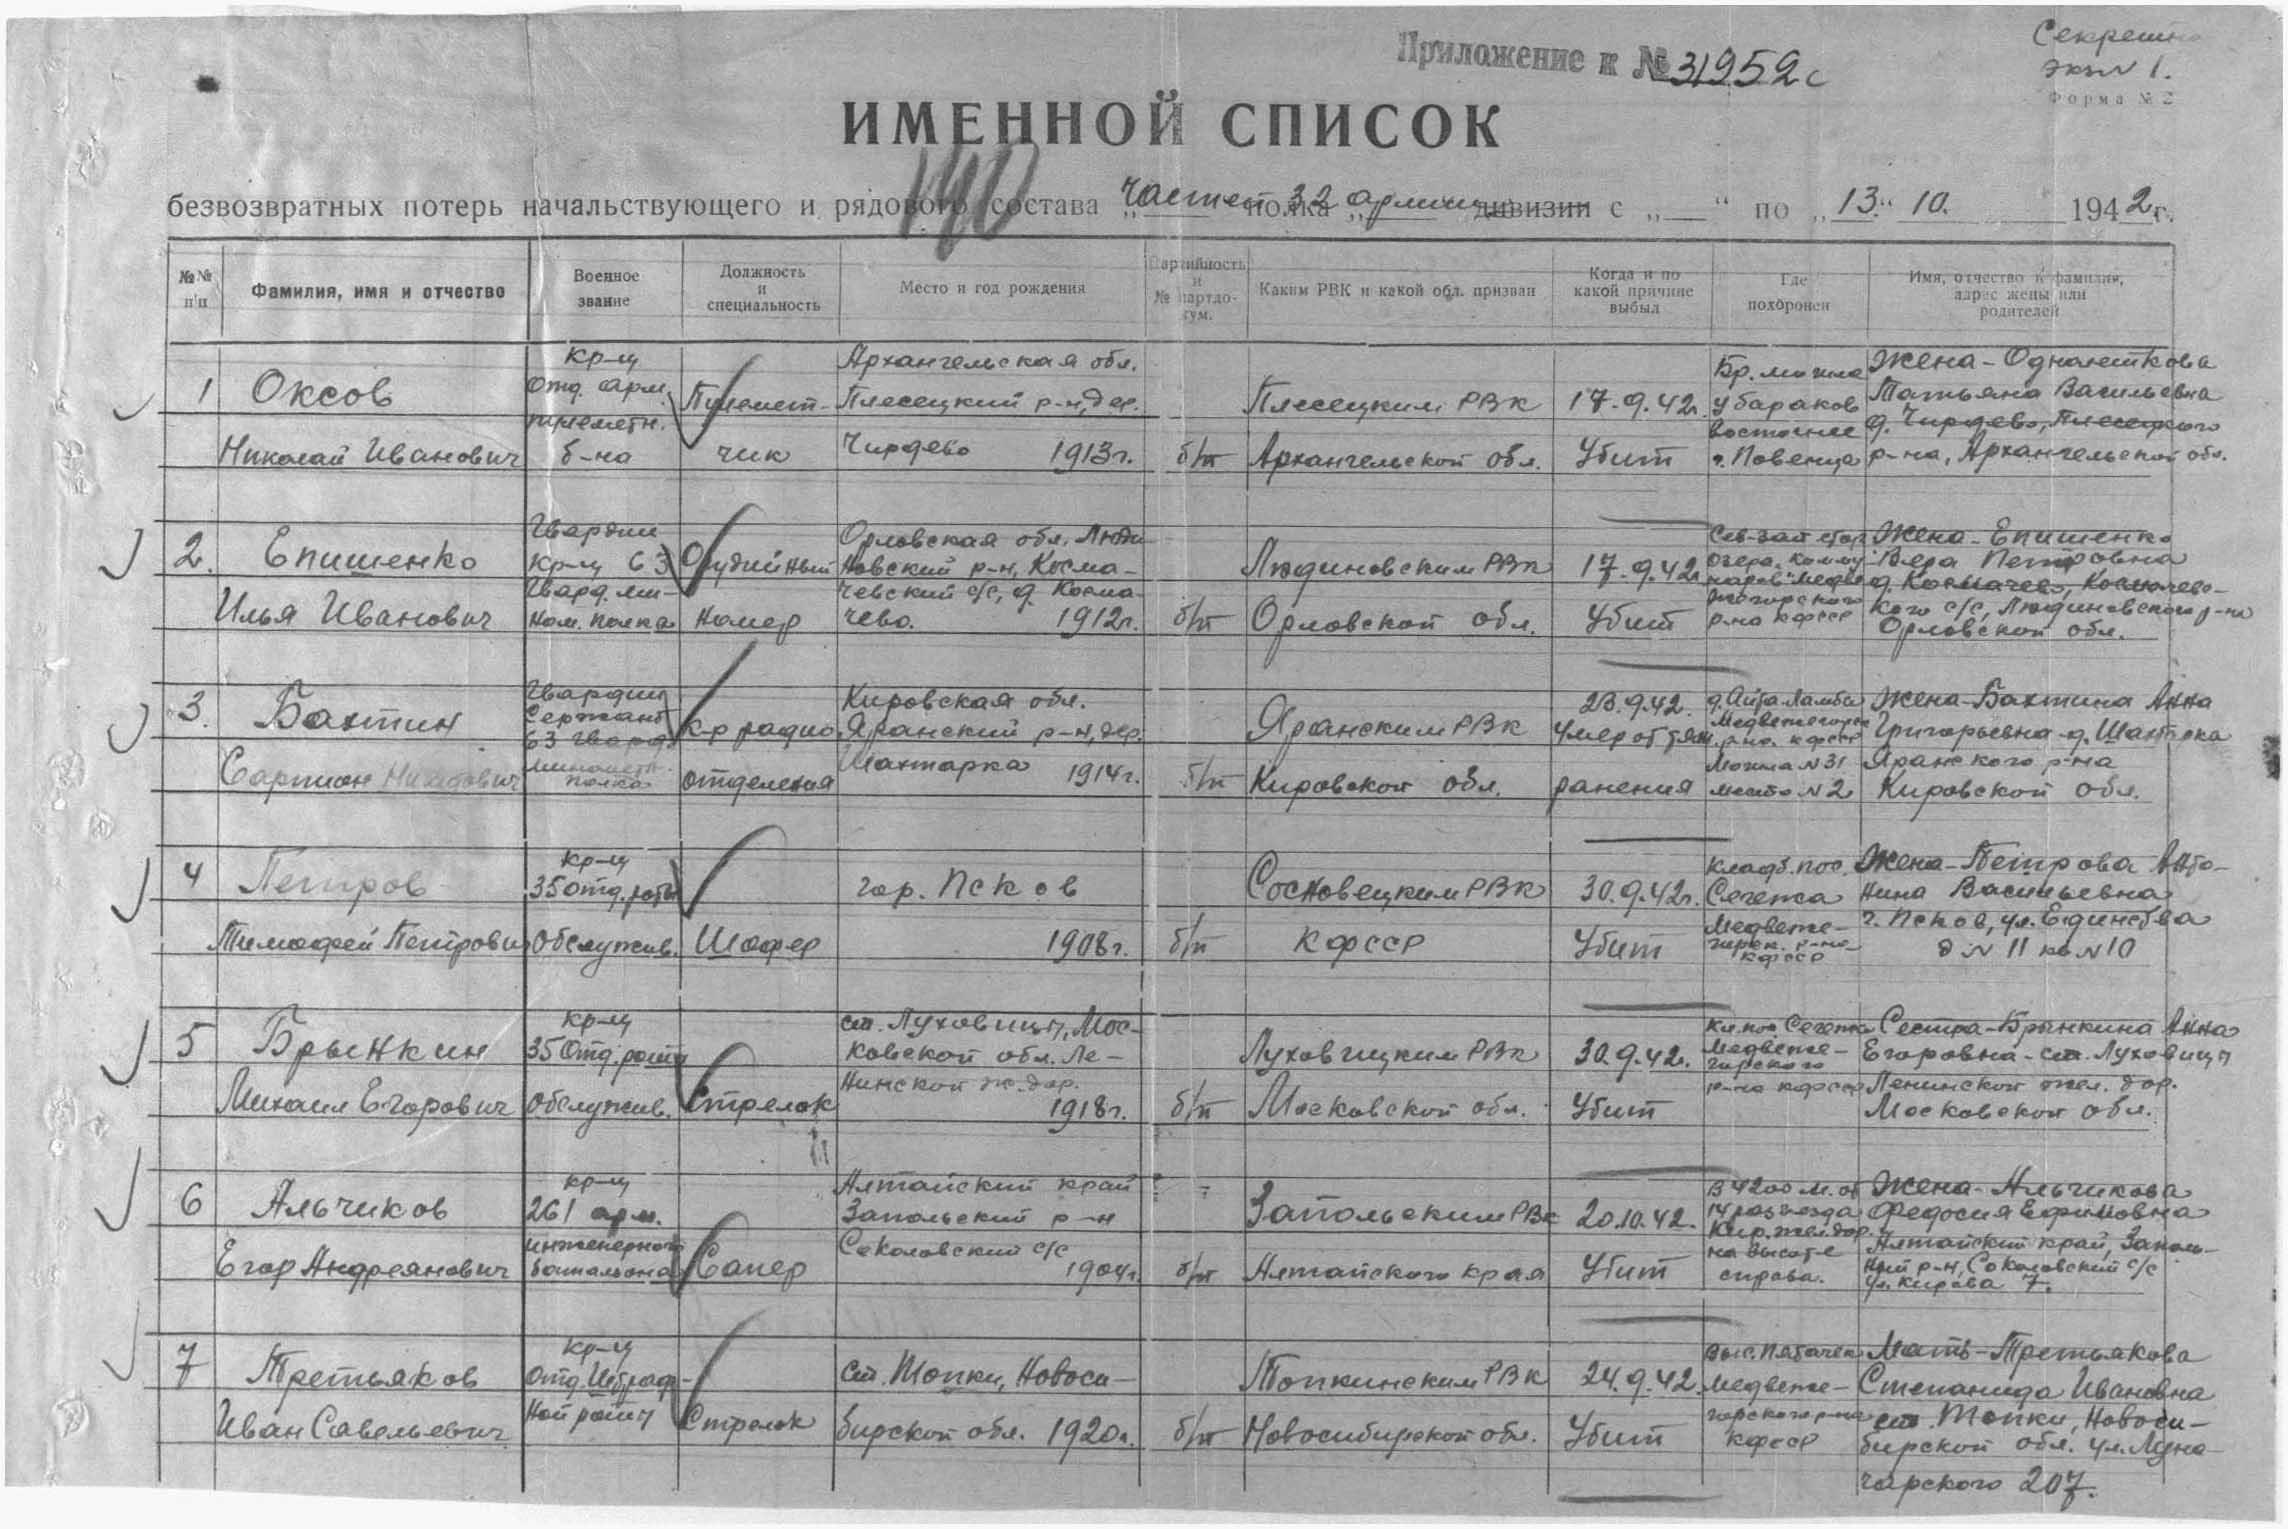 Приложение к № 31952с
Секретно
экз № 1.
Форма № 2
ИМЕННОЙ СПИСОК
безвозвратных потерь начальствующего и рядового состава „частей полка „32 армии дивизии с „ “ по „13.“ 10. 1942 г.
№№ п/п
Фамилия, имя и отчество
Военное звание
Должность и специальность
Место и год рождения
Партийность и № партдокум.
Каким РВК и какой обл. призван
Когда и по какой причине выбыл
Где похоронен
Имя, отчество и фамилия, адрес жены или родителей
1
Оксов
Николай Иванович
кр-ц
Отд. арм.
пулеметн.
б-на
Пулемет-
чик
Архангельская обл.
Плесецкий р-н, дер.
Чирдево 1913г.
б/п
Плесецким РВК
Архангельской обл.
17.9.42г.
Убит
Бр. могила
у бараков
восточнее
г. Повенца
Жена-Однолеткова
Татьяна Васильевна
д. Чирдево, Плесецкого
р-на, Архангельской обл.
2.
Епишенко
Илья Иванович
Гвардии
кр-ц 63
Гвард. ми-
ном. полка
Орудийный
номер
Орловская обл. Люди-
новский р-н, Косма-
чевский с/с, д. Косма-
чево. 1912г.
б/п
Людиновским РВК
Орловской обл.
17.9.42г.
Убит
Сев-зап
озера
р-на КФССР
Жена-Епишенко
Вера Петровна
д. Космачево, Космачевс-
кого с/с, Людиновского р-на
Орловской обл.
3.
Бахтин
Гвардии
Сержант
63 гвард.
минометн.
полка
к-р радио
отделения
Кировская обл.
Яранский р-н, дер.
Шахтарка 1914г.
б/п
Яранским РВК
Кировской обл.
23.9.42.
Умер от тяж.
ранения
Медвежегорск.
р-на. КФССР
Могила № 31
место № 2
Жена-Бахтина Анна
Григорьевна-д. Шахтарка
Яранского р-на
Кировской обл.
4
Петров
Тимофей Петрович
кр-ц
35 отд. роты
обслужив.
Шофер
гор. Псков
1908г.
б/п
Сосновецким РВК
КФССР
30.9.42г.
Убит
Кладб. пос.
Сегежа
Медвеже-
горск. р-на
КФССР
Жена-Петрова Анто-
нина Васильевна
г. Псков, ул. Единства
д № 11 кв № 10
5
Брынкин
Михаил Егорович
кр-ц
35 отд. роты
обслужив.
Стрелок
ст. Луховицы, Мос-
ковской обл. Ле-
нинской ж. дор.
1918г.
б/п
Луховицким РВК
Московской обл.
30.9.42.
Убит
Кл. пос Сегежа
Медвеже-
горского
р-на КФССР
Сестра-Брынкина Анна
Егоровна-ст. Луховицы
Ленинской жел. дор.
Московской обл.
6
Альчиков
Егор Андреянович
кр-ц
261 арм.
инженерного
батальона
Сапер
Алтайский край
Запольский р-н
Соколовский с/с
1904г.
б/п
Запольским РВК
Алтайского края
20.10.42.
Убит
В 4200 м. от
14 разъезда
Кир. жел. дор.
на высоте
справа.
Жена-Альчикова
Федосия Ефимовна
Алтайский край, Заполь-
ный р-н, Соколовский с/с
ул. Кирова 7.
7
Третьяков
Иван Савельевич
кр-ц
Отд. Штраф-
ной роты
Стрелок
ст. Топки, Новоси-
бирской обл. 1920г.
б/п
Топкинским РВК
Новосибирской обл.
24.9.42.
Убит
Медвеже-
горского р-на
КФССР
Мать-Третьякова
Степанида Ивановна
ст. Топки, Новоси-
бирской обл. ул. Луна-
чарского 207.